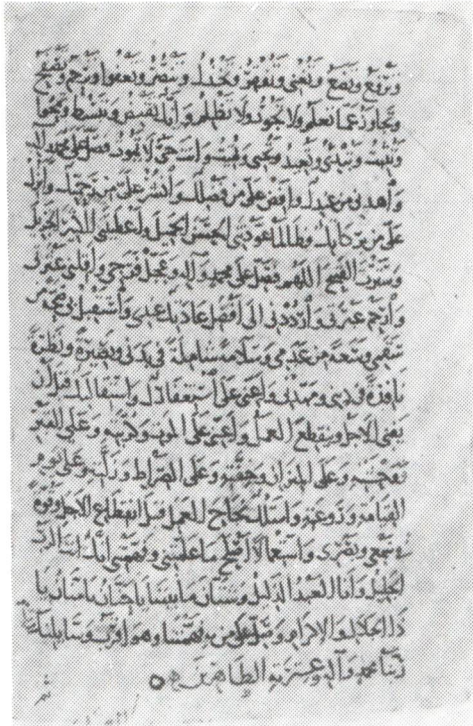 وترفع وتضع وتغني وتفقر وتخذل وتنصر وتعفوا وترحم وتصفح
وتجاوز عما تعلم ولا تجور ولا تظلم وانك تقبض وتبسط وتمحوا
وتثبت وتبدئ وتعيد وتحيي وتميت وانت حي لا تموت فصل على محمد وآله
واهدني من عندك وافض علي من فضلك وانشر علي من رحمتك وانزل
علي من بركاتك فطالما عودتني الحسن الجميل واعطيتني الكثير الجزيل
وسترت القبيح اللهم فصل على محمد وآله وعجل فرجي واقلني عثرتي
وارحم عبرتي وارددني الى افضل عادتك عندي واستقبل بي صحة من
سقمي وسعة من عدمي وسلامة شاملة في بدني وبصيرة ونظرة
نافذة في ديني ومهدني واعني على استغفارك واستقالتك قبل ان
يفنى الاجل وينقطع العمل واعني على الموت وكربته وعلى القبر
ووحشته وعلى الميزان وخفته وعلى الصراط وزلته وعلى يوم
القيامة وروعته واسألك نجاح العمل قبل انقطاع الاجل وقوة
في سمعي وبصري واستعمالا علمتني وفهمتني انك انت الرب
الجليل وانا العبد الذليل وشتان ما بيننا يا حنان يا منان يا
ذا الجلال والاكرام وصل على من به فهمتنا وهو اقرب وسائلنا اليك
ربنا محمد وآله وعترته الطاهرين